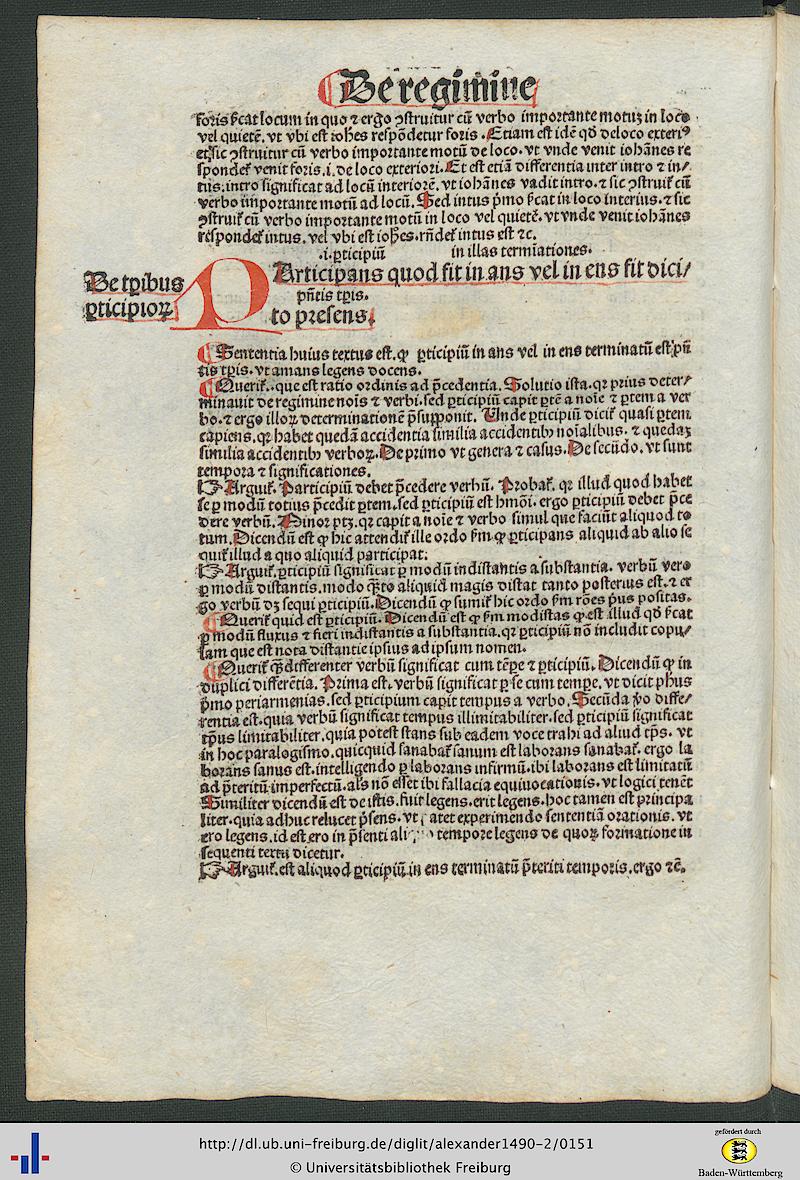 De regimine
foris ſ̄cat locum in quo ⁊ ergo ꝯſtruitur cū verbo importante motuꝫ in loco
vel quietē. vt vbi eſt ioh̄es reſpōdetur foris. Etiam eſt idē qd̄ de loco exteriꝰ
et ſic ꝯſtruitur cū verbo importante motū de loco. vt vnde venit iohānes re
ſpondet᷑ venit foris .i. de loco exteriori. Et eſt etiā differentia inter intro ⁊ in/
tus. intro ſignificat ad locū interiorē. vt iohānes vadit intro. ⁊ ſic ꝯſtruit᷑ cū
verbo importante motū ad locū. Sed intus p̄mo ſ̄cat in loco interius. ⁊ ſic
ꝯſtruit᷑ cū verbo importante motū in loco vel quietē. vt vnde venit iohānes
reſpondet᷑ intus. vel vbi eſt ioh̄es. rn̄det᷑ intus eſt ⁊c.
.i. ꝑticipiū in illas termīationes.
PArticipans quod fit in ans vel in ens fit dici/
De tꝑibus
ꝑticipioꝝ
pn̄tis tꝑis.
to preſens.
Sententia huius textus eſt. ꝙ ꝑticipiū in ans vel in ens terminatū eſt pn̄
tis tꝑis. vt amans legens docens.
Querit᷑. que eſt ratio ordinis ad p̄cedentia. Solutio iſta. qꝛ prius deter/
minauit de regimine nois ⁊ verbi. ſed ꝑticipiū capit ꝑtē a noīe ⁊ ꝑtem a ver
bo. ⁊ ergo illoꝝ determinationē p̄ſupponit. Unde ꝑticipiū dicit᷑ quaſi ꝑtem
capiens. qꝛ habet quedā accidentia ſimilia accidentibꝫ noīalibus. ⁊ quedaꝫ
ſimilia accidentibꝫ verboꝝ. De primo vt genera ⁊ caſus. De ſecūdo. vt ſunt
tempora ⁊ ſignificationes.
Arguit᷑. Participiū debet p̄cedere verbū. Probat᷑. qꝛ illud quod habet
ſe ꝑ modū totius p̄cedit ꝑtem. ſed ꝑticipiū eſt hmōi. ergo ꝑticipiū debet p̄ce
dere verbū. Minor ptꝫ. qꝛ capit a noīe ⁊ verbo ſimul que faciūt aliquod to
tum. Dicendū eſt ꝙ hic attendit᷑ ille ordo ſm ꝙ ꝑticipans aliquid ab alio ſe
quit᷑ illud a quo aliquid participat.
Arguit᷑. ꝑticipiū ſignificat ꝑ modū indiſtantis a ſubſtantia. verbū vero
ꝑ modū diſtantis. modo qn̄to aliquid magis diſtat tanto poſterius eſt. ⁊ er
go verbū dꝫ ſequi ꝑticipiū. Dicendū ꝙ ſumit᷑ hic ordo ſm rōes pⁱus poſitas.
Querit᷑ quid eſt ꝑticipiū. Dicendū eſt ꝙ ſm modiſtas ꝙ eſt illud qd̄ ſ̄cat
ꝑ modū fluxus ⁊ fieri indiſtantis a ſubſtantia. qꝛ ꝑticipiū nō includit copu/
lam que eſt nota diſtantie ipſius ad ipſum nomen.
Querit᷑ qn̄ differenter verbū ſignificat cum tēpe ⁊ ꝑticipiū. Dicendū ꝙ in
duplici differētia. Prima eſt. verbū ſignificat ꝑ ſe cum tempe. vt dicit ph̄us
p̄mo periarmenias. ſed ꝑticipium capit tempus a verbo. Secūda v̊o diffe/
rentia eſt. quia verbū ſignificat tempus illimitabiliter. ſed ꝑticipiū ſignificat
tp̄us limitabiliter. quia poteſt ſtans ſub eadem voce trahi ad aliud tp̄s. vt
in hoc paralogiſmo. quicquid ſanabat᷑ ſanum eſt laborans ſanabat᷑. ergo la
borans ſanus eſt. intelligendo ꝑ laborans infirmū. ibi laborans eſt limitatū
ad p̄teritū imperfectū. als nō eſſet ibi fallacia equiuocationis. vt logici tenēt
Similiter dicendū eſt de iſtis. fuit legens. erit legens. hoc tamen eſt principa
liter. quia adhuc relucet p̄ſens. vt patet experimendo ſententiā orationis. vt
ero legens. id eſt ero in p̄ſenti tempore legens de quoꝝ formatione in
ſequenti textu dicetur.
Arguit᷑. eſt aliquod ꝑticipiū in ens terminatū p̄teriti temporis. ergo ⁊c̄.
http://dl.ub.uni-freiburg.de/diglit/alexander1490-2/0151
© Universitätsbibliothek Freiburg
gefördert durch
Baden-Württemberg